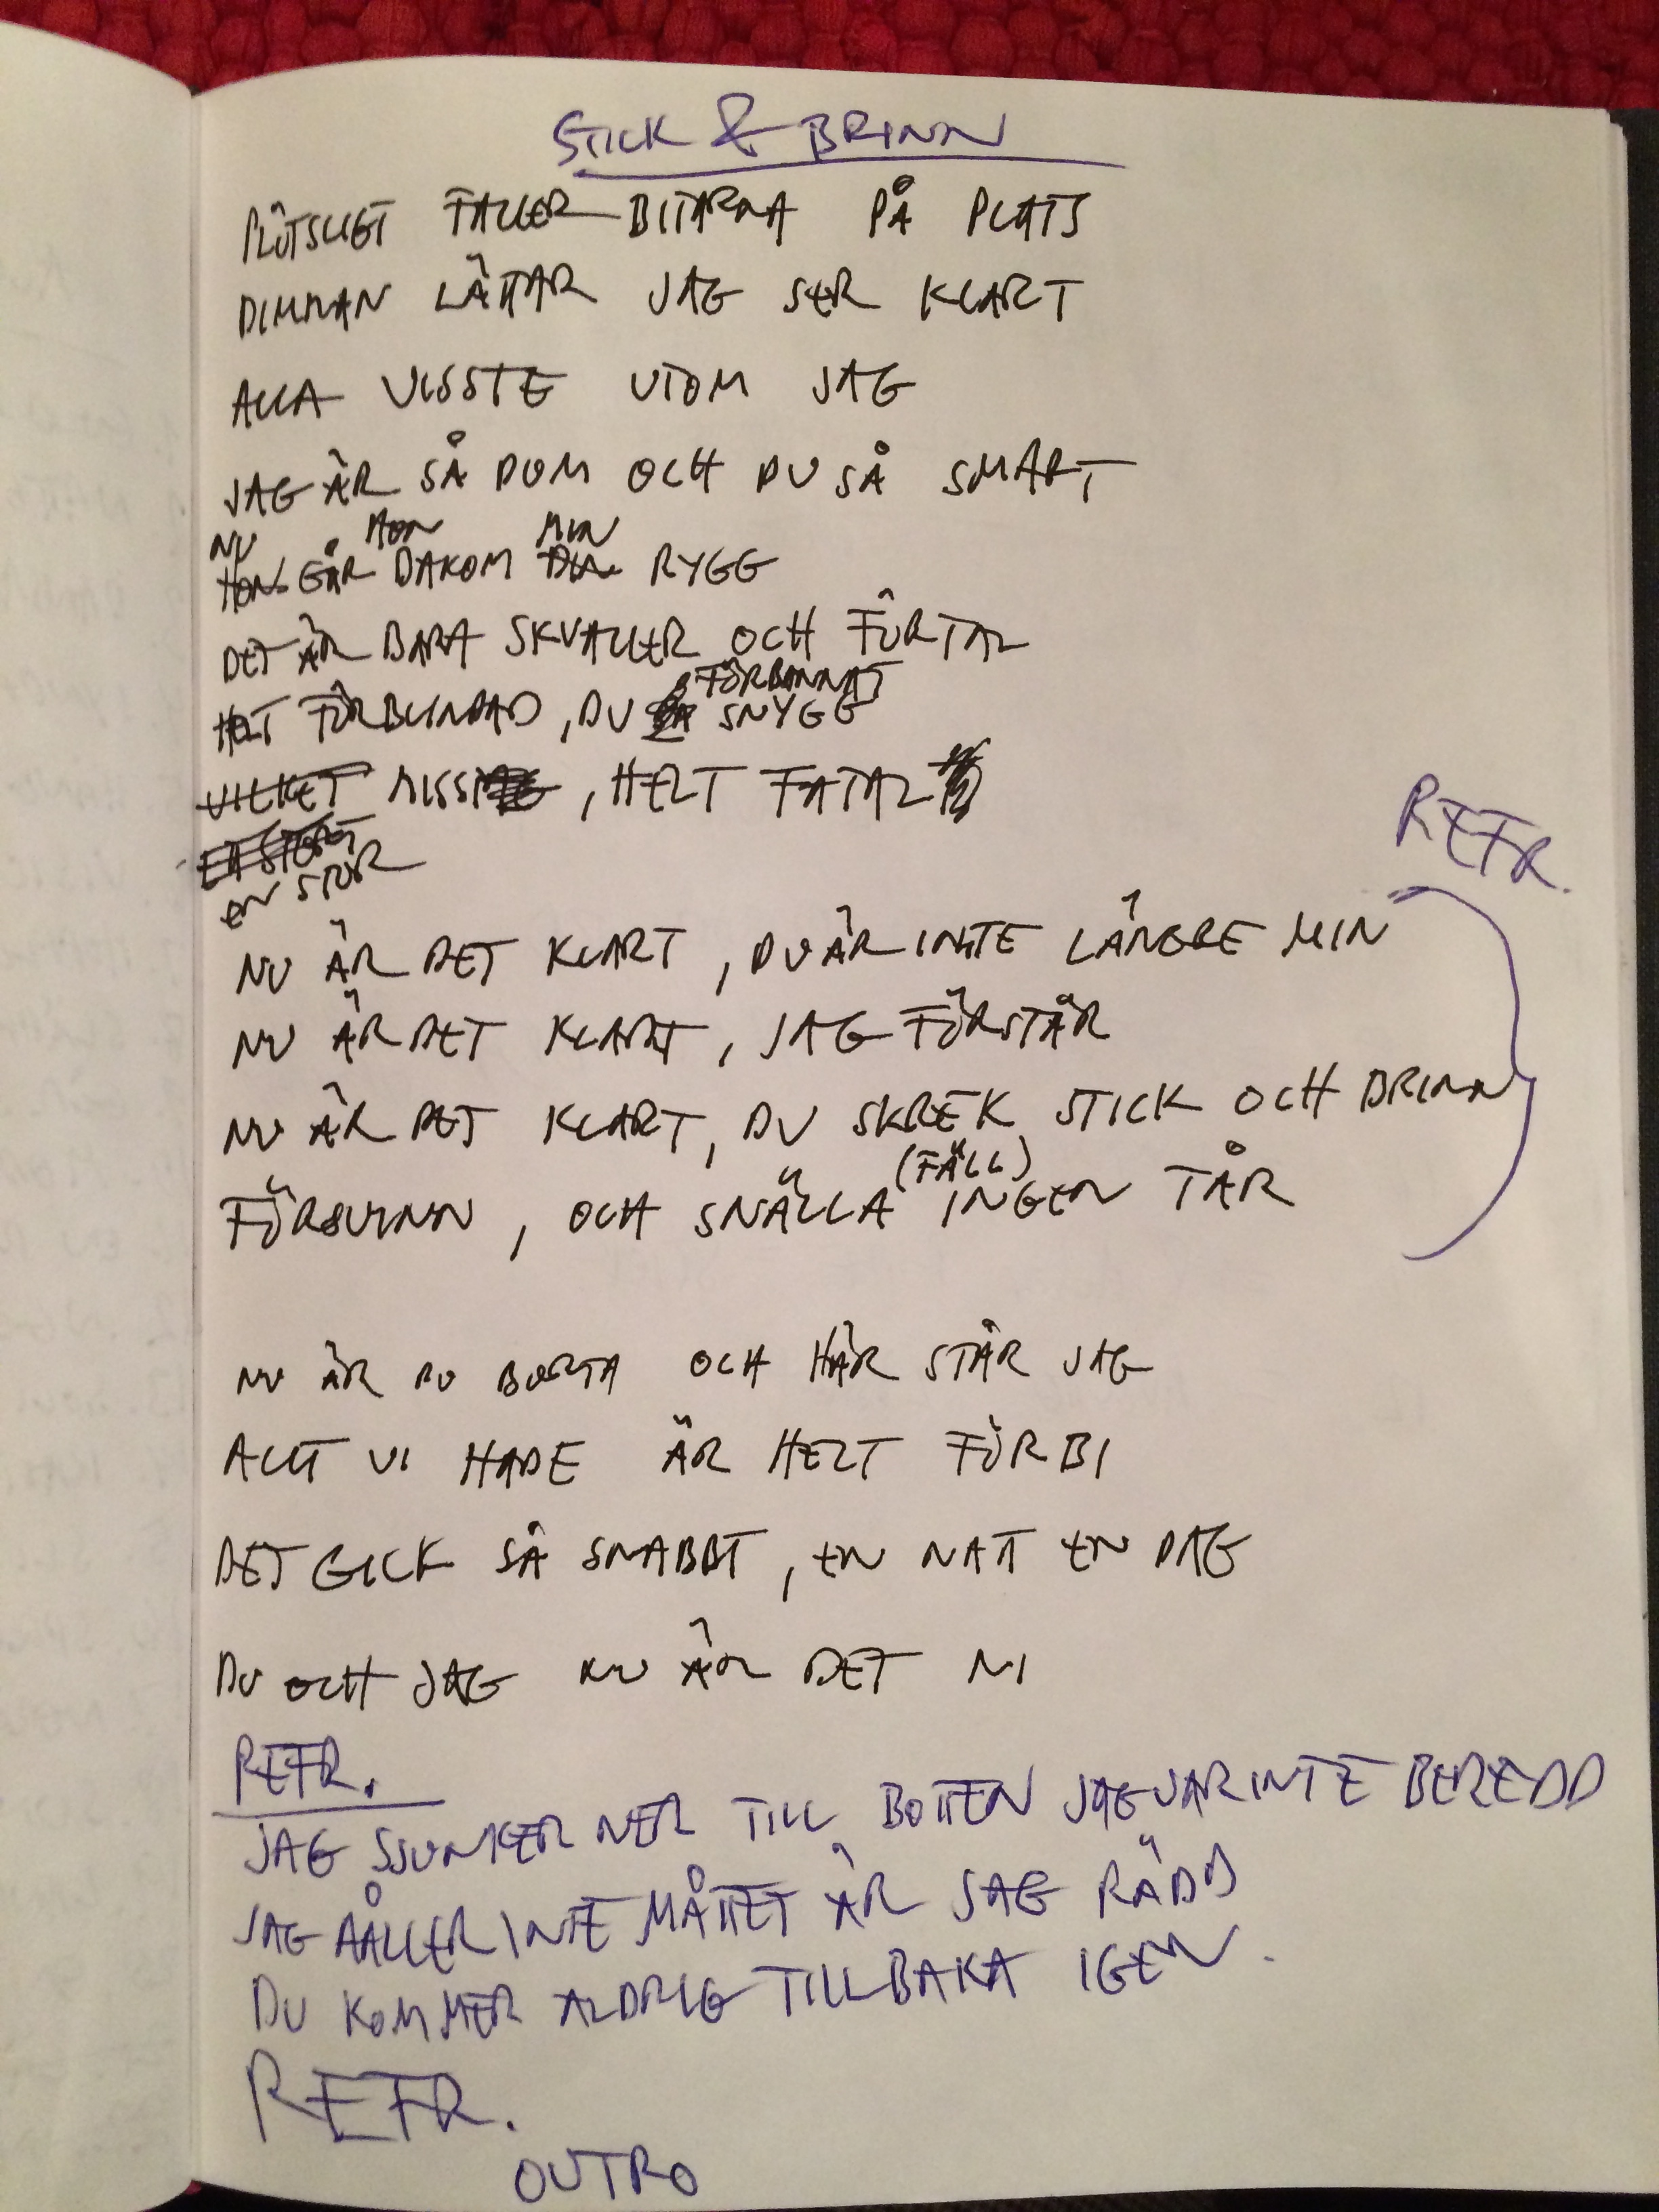 STICK & BRINN
PLÖTSLIGT FALLER BITARNA PÅ PLATS
DIMMAN LÄTTAR JAG SER KLART
ALLA VISSTE UTOM JAG
JAG ÄR SÅ DUM OCH DU SÅ SMART
NU HON MIN
HON GÅR BAKOM DIN RYGG
DET ÄR BARA SKVALLER OCH FÖRTAL
FÖRBANNAT
HELT FÖRBLINDAD, DU SNYGG
VILKET MISS, HELT FATAL
ETT STORT
EN STOR
REFR.
NU ÄR DET KLART, DU ÄR INTE LÄNGRE MIN
NU ÄR DET KLART, JAG FÖRSTÅR
NU ÄR DET KLART, DU SKREK STICK OCH BRINN
(FÄLL)
FÖRSVINN, OCH SNÄLLA INGEN TÅR
NU ÄR DU BORTA OCH HÄR STÅR JAG
ALLT VI HADE ÄR HELT FÖRBI
DET GICK SÅ SNABBT, EN NATT EN DAG
DU OCH JAG NU ÄR DET NI
REFR.
JAG SJUNKER NER TILL BOTTEN JAG VAR INTE BEREDD
JAG HÅLLER INTE MÅTTET ÄR JAG RÄDD
DU KOMMER ALDRIG TILLBAKA IGEN.
REFR.
OUTRO